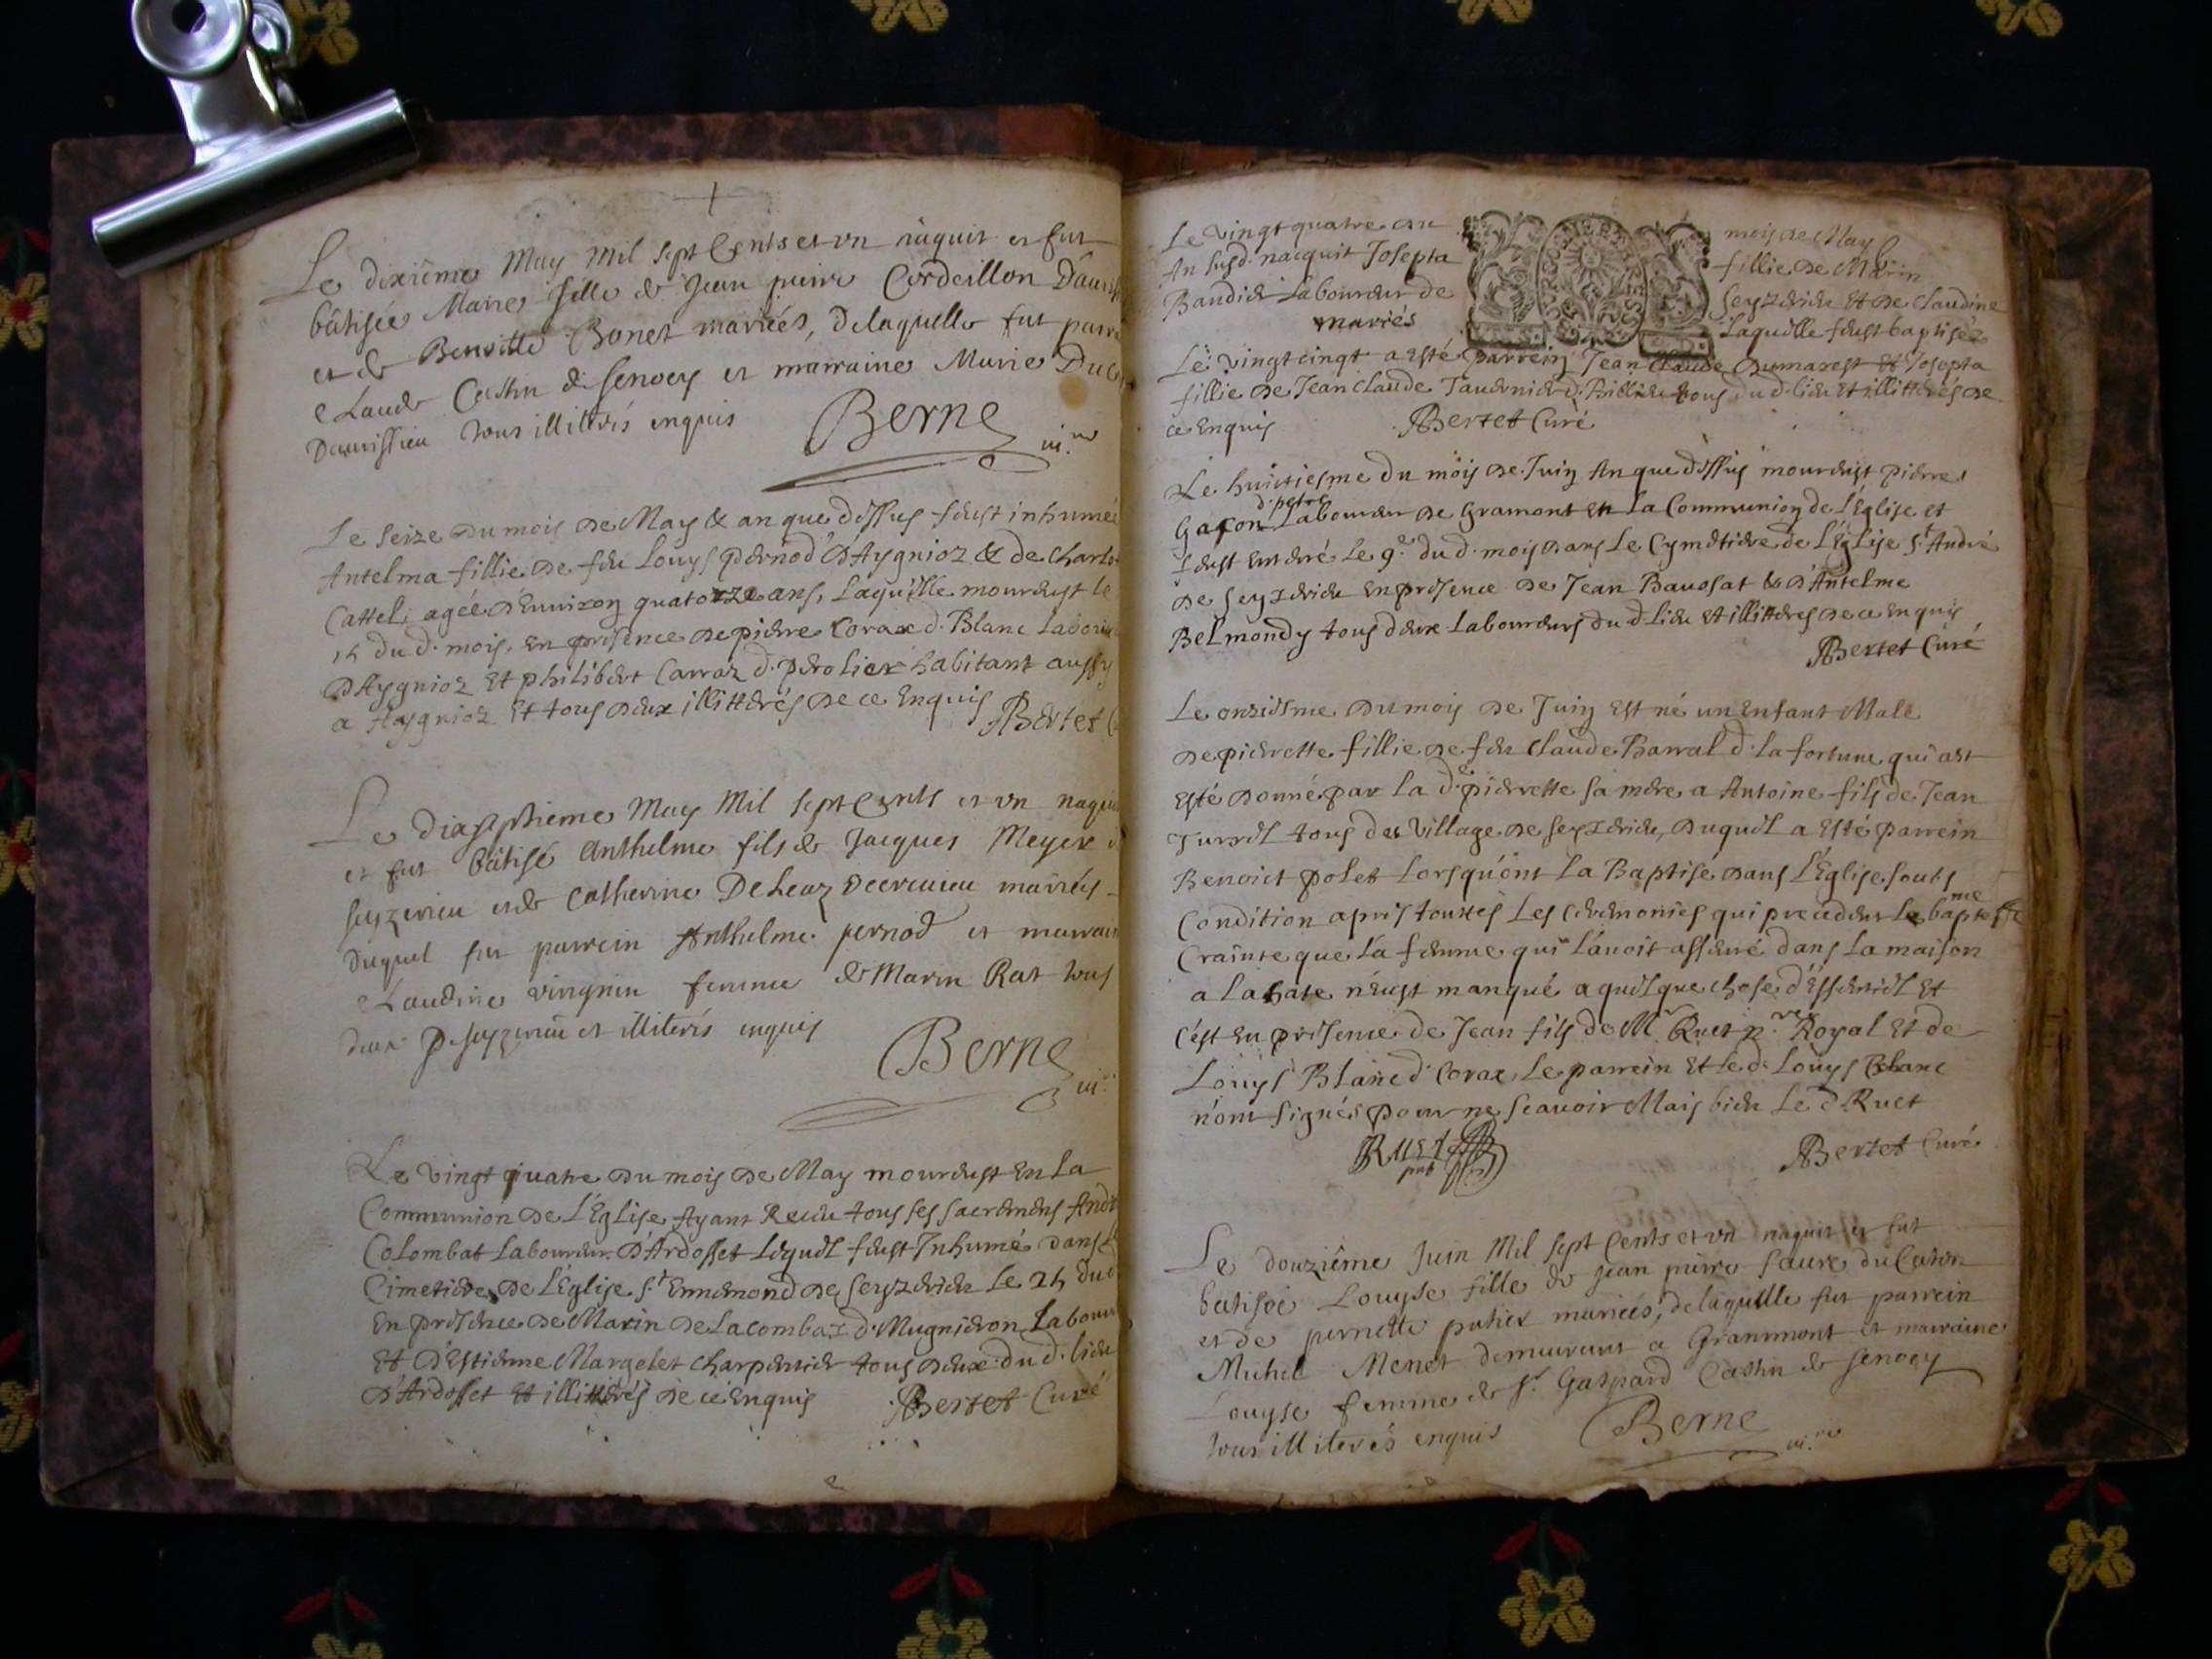 Le dixiême May Mil sept Cents et vn nâquit et fut
bâtisée Marie fille de Jean pierre Cordeillon
et de Benoitte Bonet mariéés, delaquelle fut
Claude Castin de Senoey et marraine Marie
Davrissieu tous illiterés enquis Berne vi.re
Le seize du mois de May & an que dessus feust inhumée
Antelma fillie de feu Louys pernod D'Aygnioz & de
Cattel, agée d'Enuiron quatorze ans, Laquelle mourust le
15 du d. mois, En presence de pierre Corax d. Blanc
D'Aygnioz Et philibert Carraz d. perolier habitant aussy
a Aygnioz Et tous deux illitterés de ce Enquis Bertet
Le dixseptieme May Mil sept Cents et vn
et fut bâtisé Anthelme fils de Jacques Meyer
Seyzerieu et de Catherine Deleaz mariéés
Duquel fut parrein Anthelme pernod et
Claudine vingnin femme de Marin Rat tous
deux De Seyzerieu et illiterés enquis
Berne vi.re
Le vingt quatre du mois de May mourust En La
Communion de L'Eglise Ayant Receu tous ses sacremens
Colombat Laboureur D'Ardosset Lequel feust Inhumé dans
Cimetiere de L'Eglise S.t Ennemond de Seyzerieu Le 25
En presence de Marin deLacombaz d. Mugnieron
Et D'Estienne Margelet charpentier tous deux du d. lieu
D'Ardosset Et illitterés de ce Enquis Bertet Curé
Le vingt quatre du mois de May
An susd. nacquit Josepta fillie de Marin
Bandier Laboureur de Seyzerieu Et de Claudine
mariés Laquelle feust baptisée
Le vingt cinq a esté parrein Jean Claude Dumarest Et Josepta
fillie de Jean Claude Tavernier tous du d. lieu Et illitterés de
ce Enquis Bertet Curé
Le huictiesme du mois de Juin An que dessus mourust pierre
Gacon Laboureur de Gramont En La Communion de L'Eglise Et
feust Enterré Le 9.e du d. mois dans Le Cymetiere de L'Eglise S.t André
de Seyzerieu En presence de Jean Baussat & d'Antelme
Belmondy tous deux Laboureurs du d. Lieu Et illitteres de ce Enquis
Bertet Curé
Le onziesme du mois de Juin Est né un Enfant Malle
de pierrette fillie de feu Claude Barral d. la fortune qui a
Esté donné par la d.e pierrette sa mere a Antoine fils de Jean
Jurrel tous du village de Seyzerieu, Duquel a Esté parrein
Benoict polet Lorsqu'ont La Baptisé dans L'Eglise soubs
Condition apris touttes Les Ceremonies qui precedent Le baptesme
Crainte que La femme qui L'auoit asseuré dans La maison
a La hate n'Eust manqué a quelque chose d'Essentiel Et
C'est En presence de Jean fils de M.r Ruet Royal Et de
Louys Blanc d. Corax, Le parrein Et Le d. Louys Blanc
n'ont signés pour ne sçauoir Mais bien Le d. Ruet
Ruet Bertet Curé
Le douziême Juin Mil sept Cents et vn nâquit et fut
batiseé Louyse fille de Jean pierre Saure du
et de pernette putier mariéés, delaquelle fut parrein
Michel Menet demeurant a Grammont et marraine
Louyse femme de S.r Gaspard Castin de Senoey
tous illiterés enquis Berne vi.re